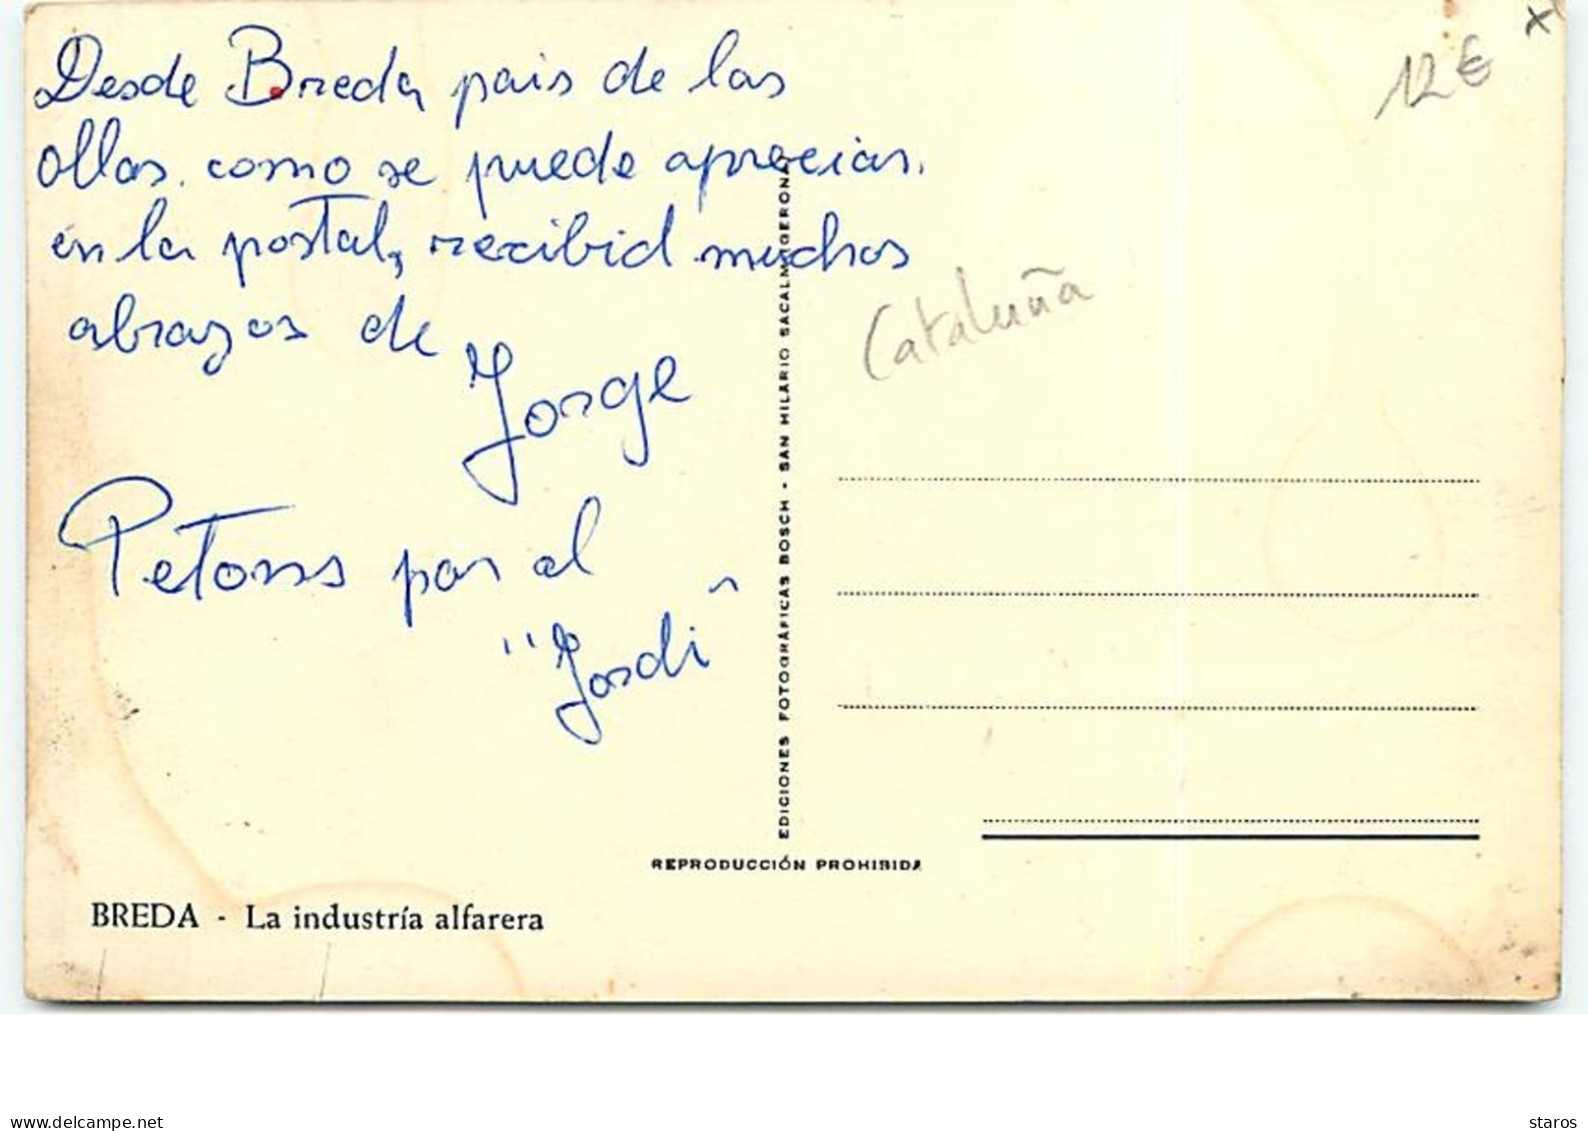 Desde Breda pais de las
ollas. como se puede apreciar.
en la postal, recibid muchos
abrazos de
Jorge
Petons por al
"Jordi"
12€
x
Cataluña
EDICIONES FOTOGRÁFICAS BOSCH - SAN HILARIO SACALM (GERONA)
REPRODUCCIÓN PROHIBIDA
BREDA - La industría alfarera
www.delcampe.net
staros